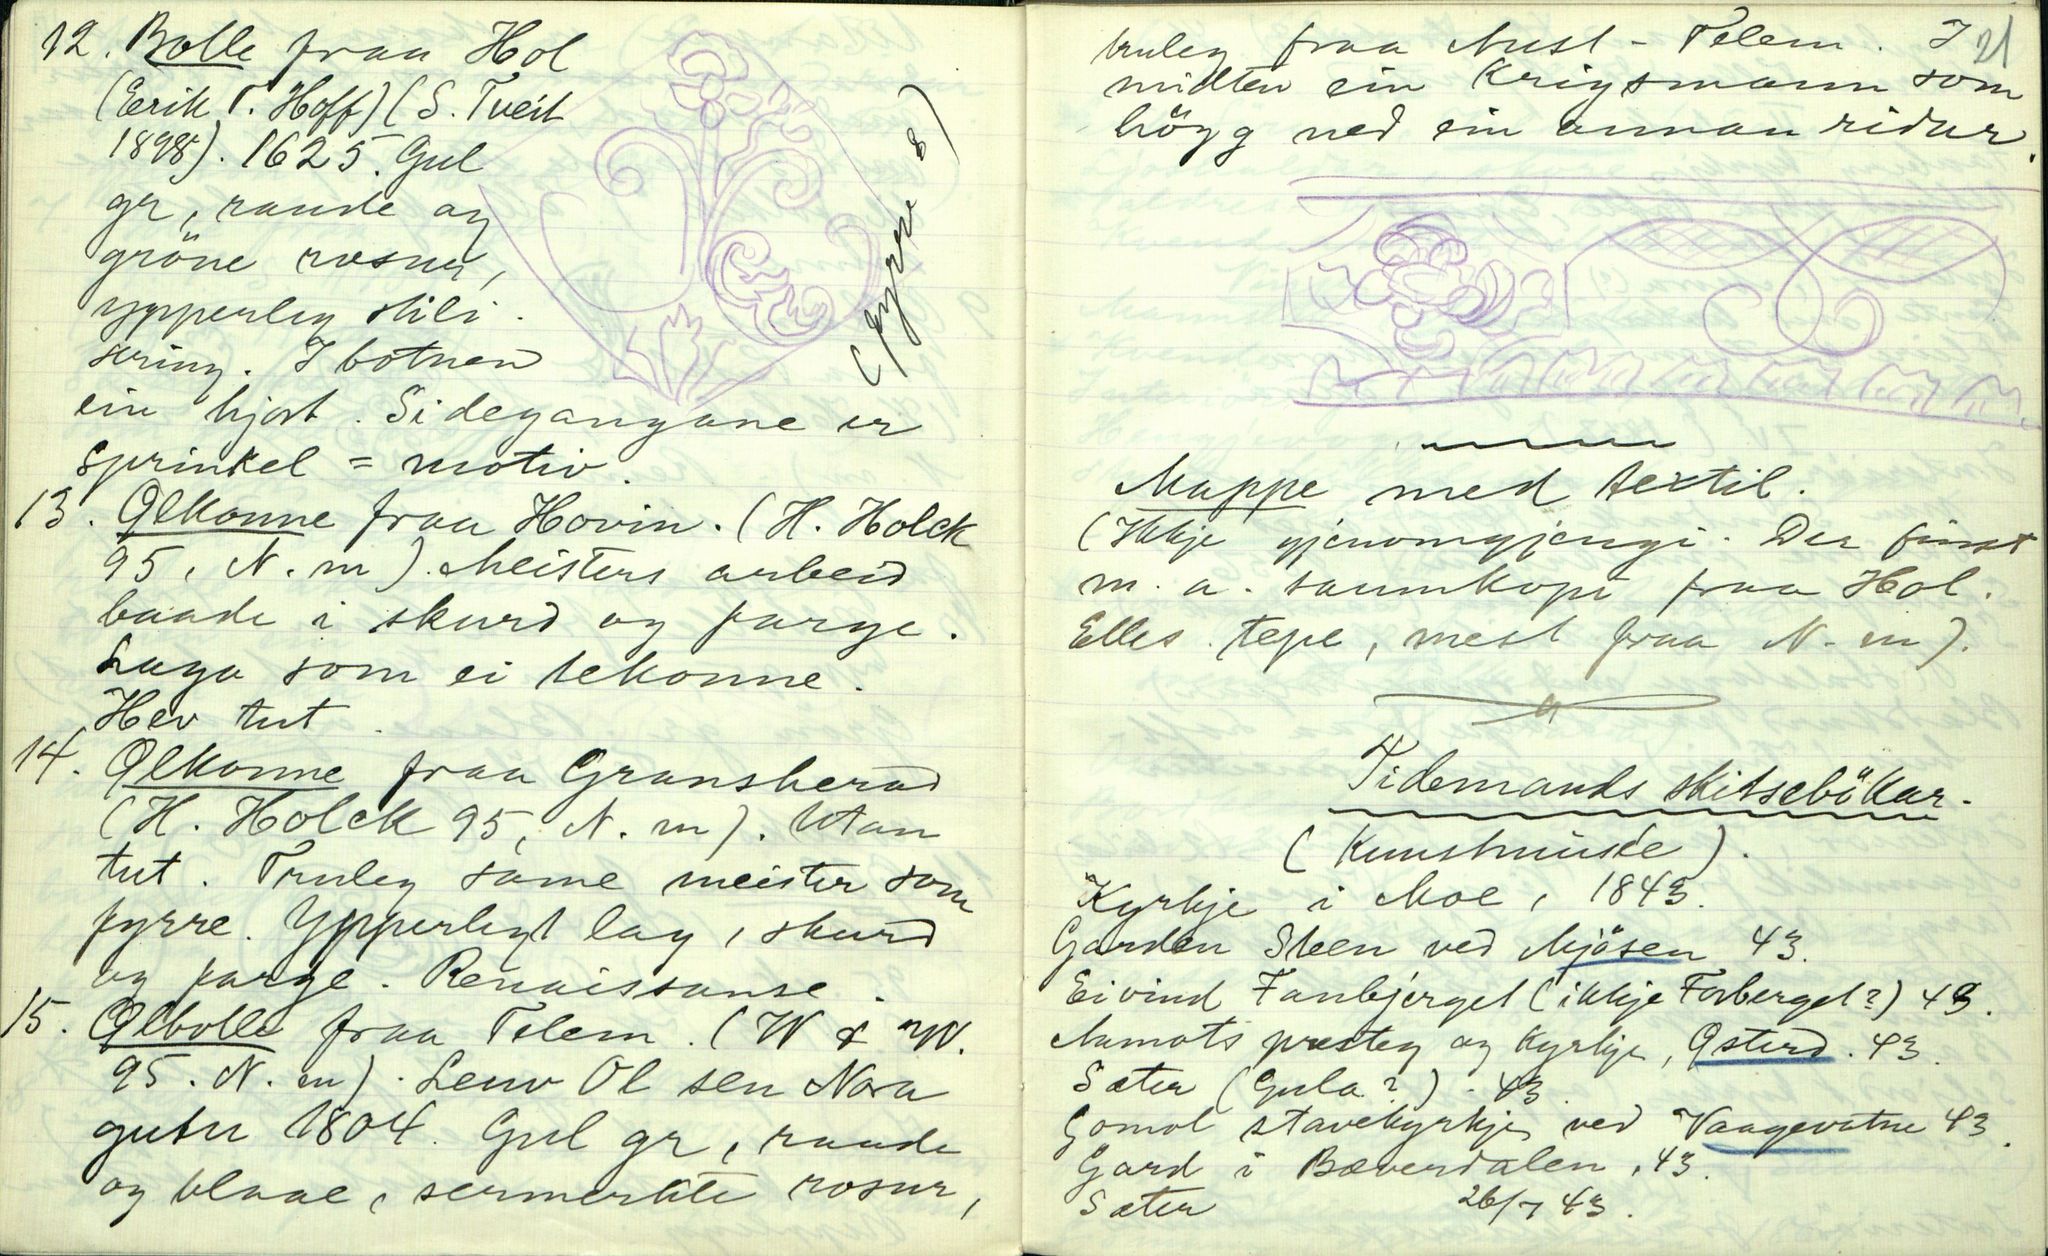 12. Bolle fraa Hol
(Eirik T. Hoff) (S. Tveit
1898). 1625. Gul
gr, raude og
gröne rosur,
ypperleg stili-
sering. I botnen
ein hjort. Sidegangane er
sprinkel = motiv.
(fyrre 8)
13. Ølkonne fraa Hovin. (H. Holck
95, N. m). Meisters arbeid
baade i skurd og farge.
Laga som ei tekonne.
Hev tut.
14. Ølkonne fraa Gransherad
(H. Holck 95, N. m). Utan
tut. Truleg same meister som
fyrre. Ypperlegt lag, skurd
og farge. Renaissanse.
15. Ølbolle fraa Telem. (W & W.
95. N. m).
guten 1804. Gul gr, raude
og blaae, sermerkte rosur,
21
truleg fraa Aust-Telem. I
midten ein Krigsmann som
högg ned ein annan ridar.
Mappe med textil.
(Ikkje gjenomgjengi. Der finst
m. a. saumkopi fraa Hol.
Elles tepe, mest fraa N-m).
Tidemands skitsebökar.
(Kunstmuseé).
Kyrkje i Moe, 1843.
Garden Steen ved Mjösen 43.
Eivind Fanbjerget (ikkje Forberget?) 43.
Aamots presteg og Kyrkje, Østerd. 43.
Sæter (Gula?). 43.
Gomol stavekyrkje ved Vaagevatne 43.
Gard i Bæverdalen, 43.
Sæter 26/7 43.